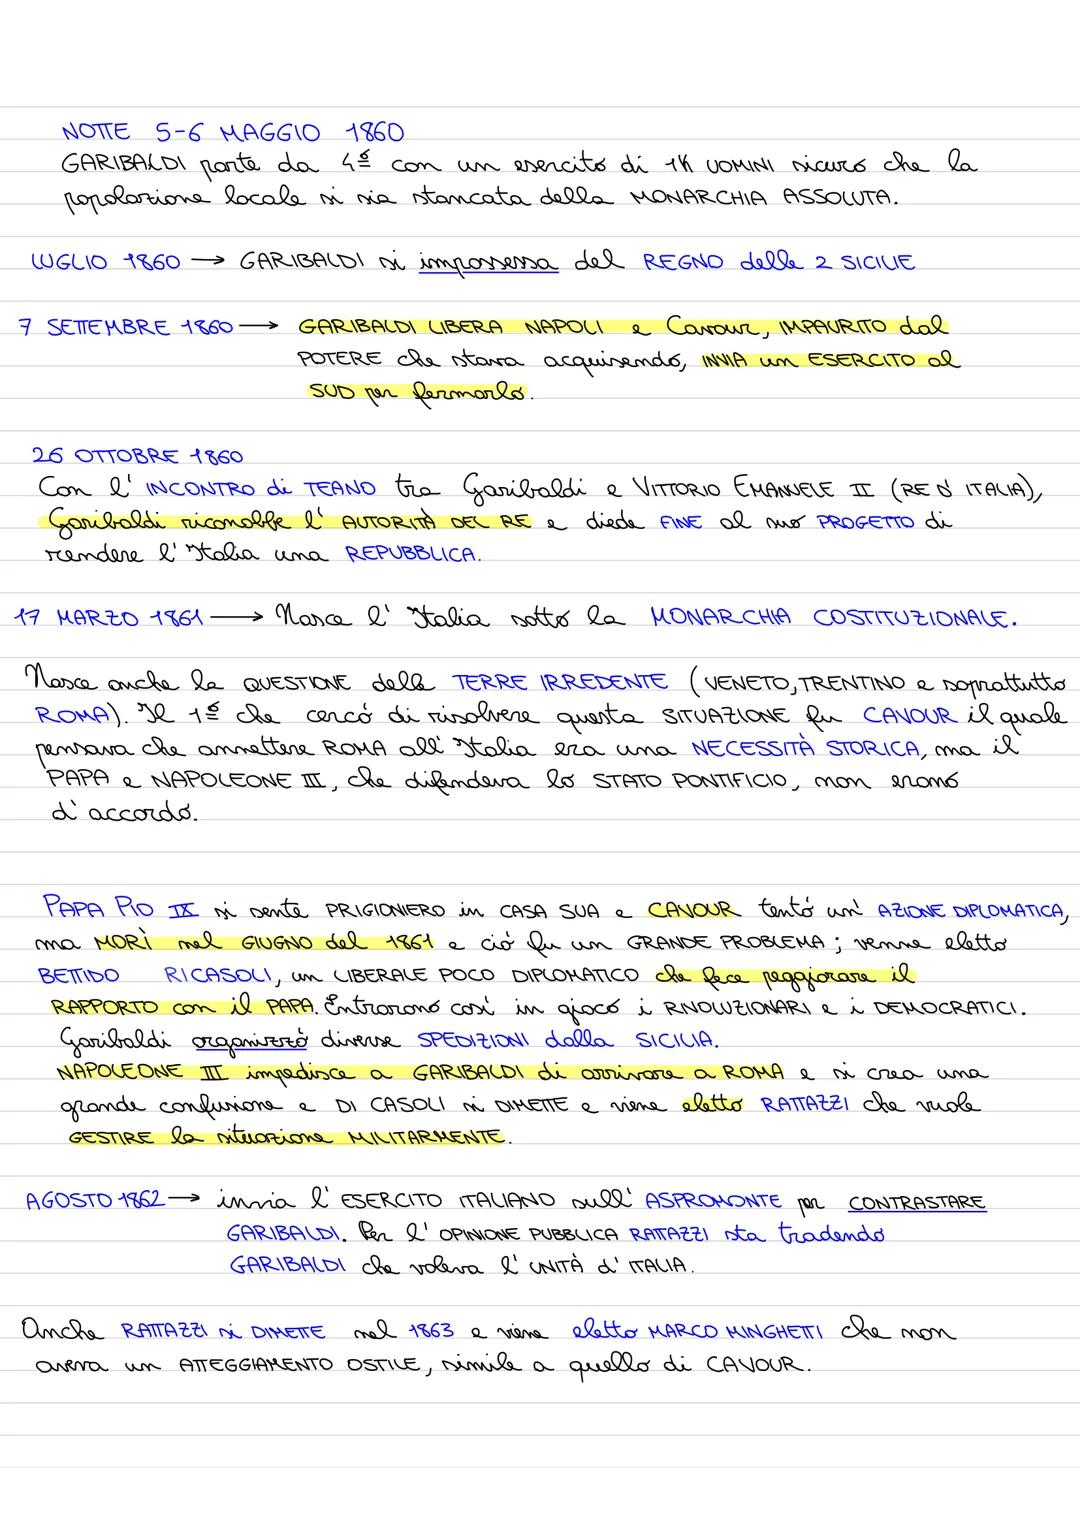 NOTTE 5-6 MAGGIO 1860
GARIBALDI parte da 4º con un esercito di 1K UOMINI sicuro che la
popolazione locale si sia stancata della MONARCHIA ASSOLUTA.
LUGLIO 1860 → GARIBALDI si impossessa del REGNO delle 2 SICILIE
7 SETTEMBRE 1860 → GARIBALDI LIBERA NAPOLI e Cavour, IMPAURITO dal
POTERE che stava acquisendo, INVIA un ESERCITO al
SUD per fermarlo.
26 OTTOBRE 1860
Con l' INCONTRO di TEANO tra Garibaldi e VITTORIO EMANUELE II (RE D' ITALIA),
Garibaldi riconobbe l' AUTORITÀ DEL RE e diede FINE al suo PROGETTO di
rendere l'Italia una REPUBBLICA.
17 MARZO 1861 → Nasce l' Italia sotto la MONARCHIA COSTITUZIONALE.
Nasce anche la QUESTIONE delle TERRE IRREDENTE (VENETO, TRENTINO e soprattutto
ROMA). Il 1º che cercó di risolvere questa SITUAZIONE fu CAVOUR il quale
pensava che annettere ROMA all' Italia era una NECESSITÀ STORICA, ma il
PAPA e NAPOLEONE III, che difendeva lo STATO PONTIFICIO, non erano
d'accordo.
PAPA PIO IX si sente PRIGIONIERO in CASA SUA e CAVOUR tentó un' AZIONE DIPLOMATICA,
ma MORÌ nel GIUGNO del 1861 e ció fu un GRANDE PROBLEMA; venne eletto
BETTIDO RICASOLI, un LIBERALE POCO DIPLOMATICO che fece peggiorare il
RAPPORTO con il PAPA. Entrarono cosí in gioco i RIVOLUZIONARI e i DEMOCRATICI.
Garibaldi organizzò diverse SPEDIZIONI dalla SICILIA.
NAPOLEONE III impedisce a GARIBALDI di arrivare a ROMA e si crea una
grande confusione e DI CASOLI si DIMETTE e viene eletto RATTAZZI che vuole
GESTIRE la situazione MILITARMENTE.
AGOSTO 1862 → invia l' ESERCITO ITALIANO sull' ASPROMONTE per CONTRASTARE
GARIBALDI. Per l' OPINIONE PUBBLICA RATTAZZI sta tradendo
GARIBALDI che voleva l' UNITÀ d' ITALIA.
Anche RATTAZZI si DIMETTE nel 1863 e viene eletto MARCO MINGHETTI che non
aveva un ATTEGGIAMENTO OSTILE, simile a quello di CAVOUR.